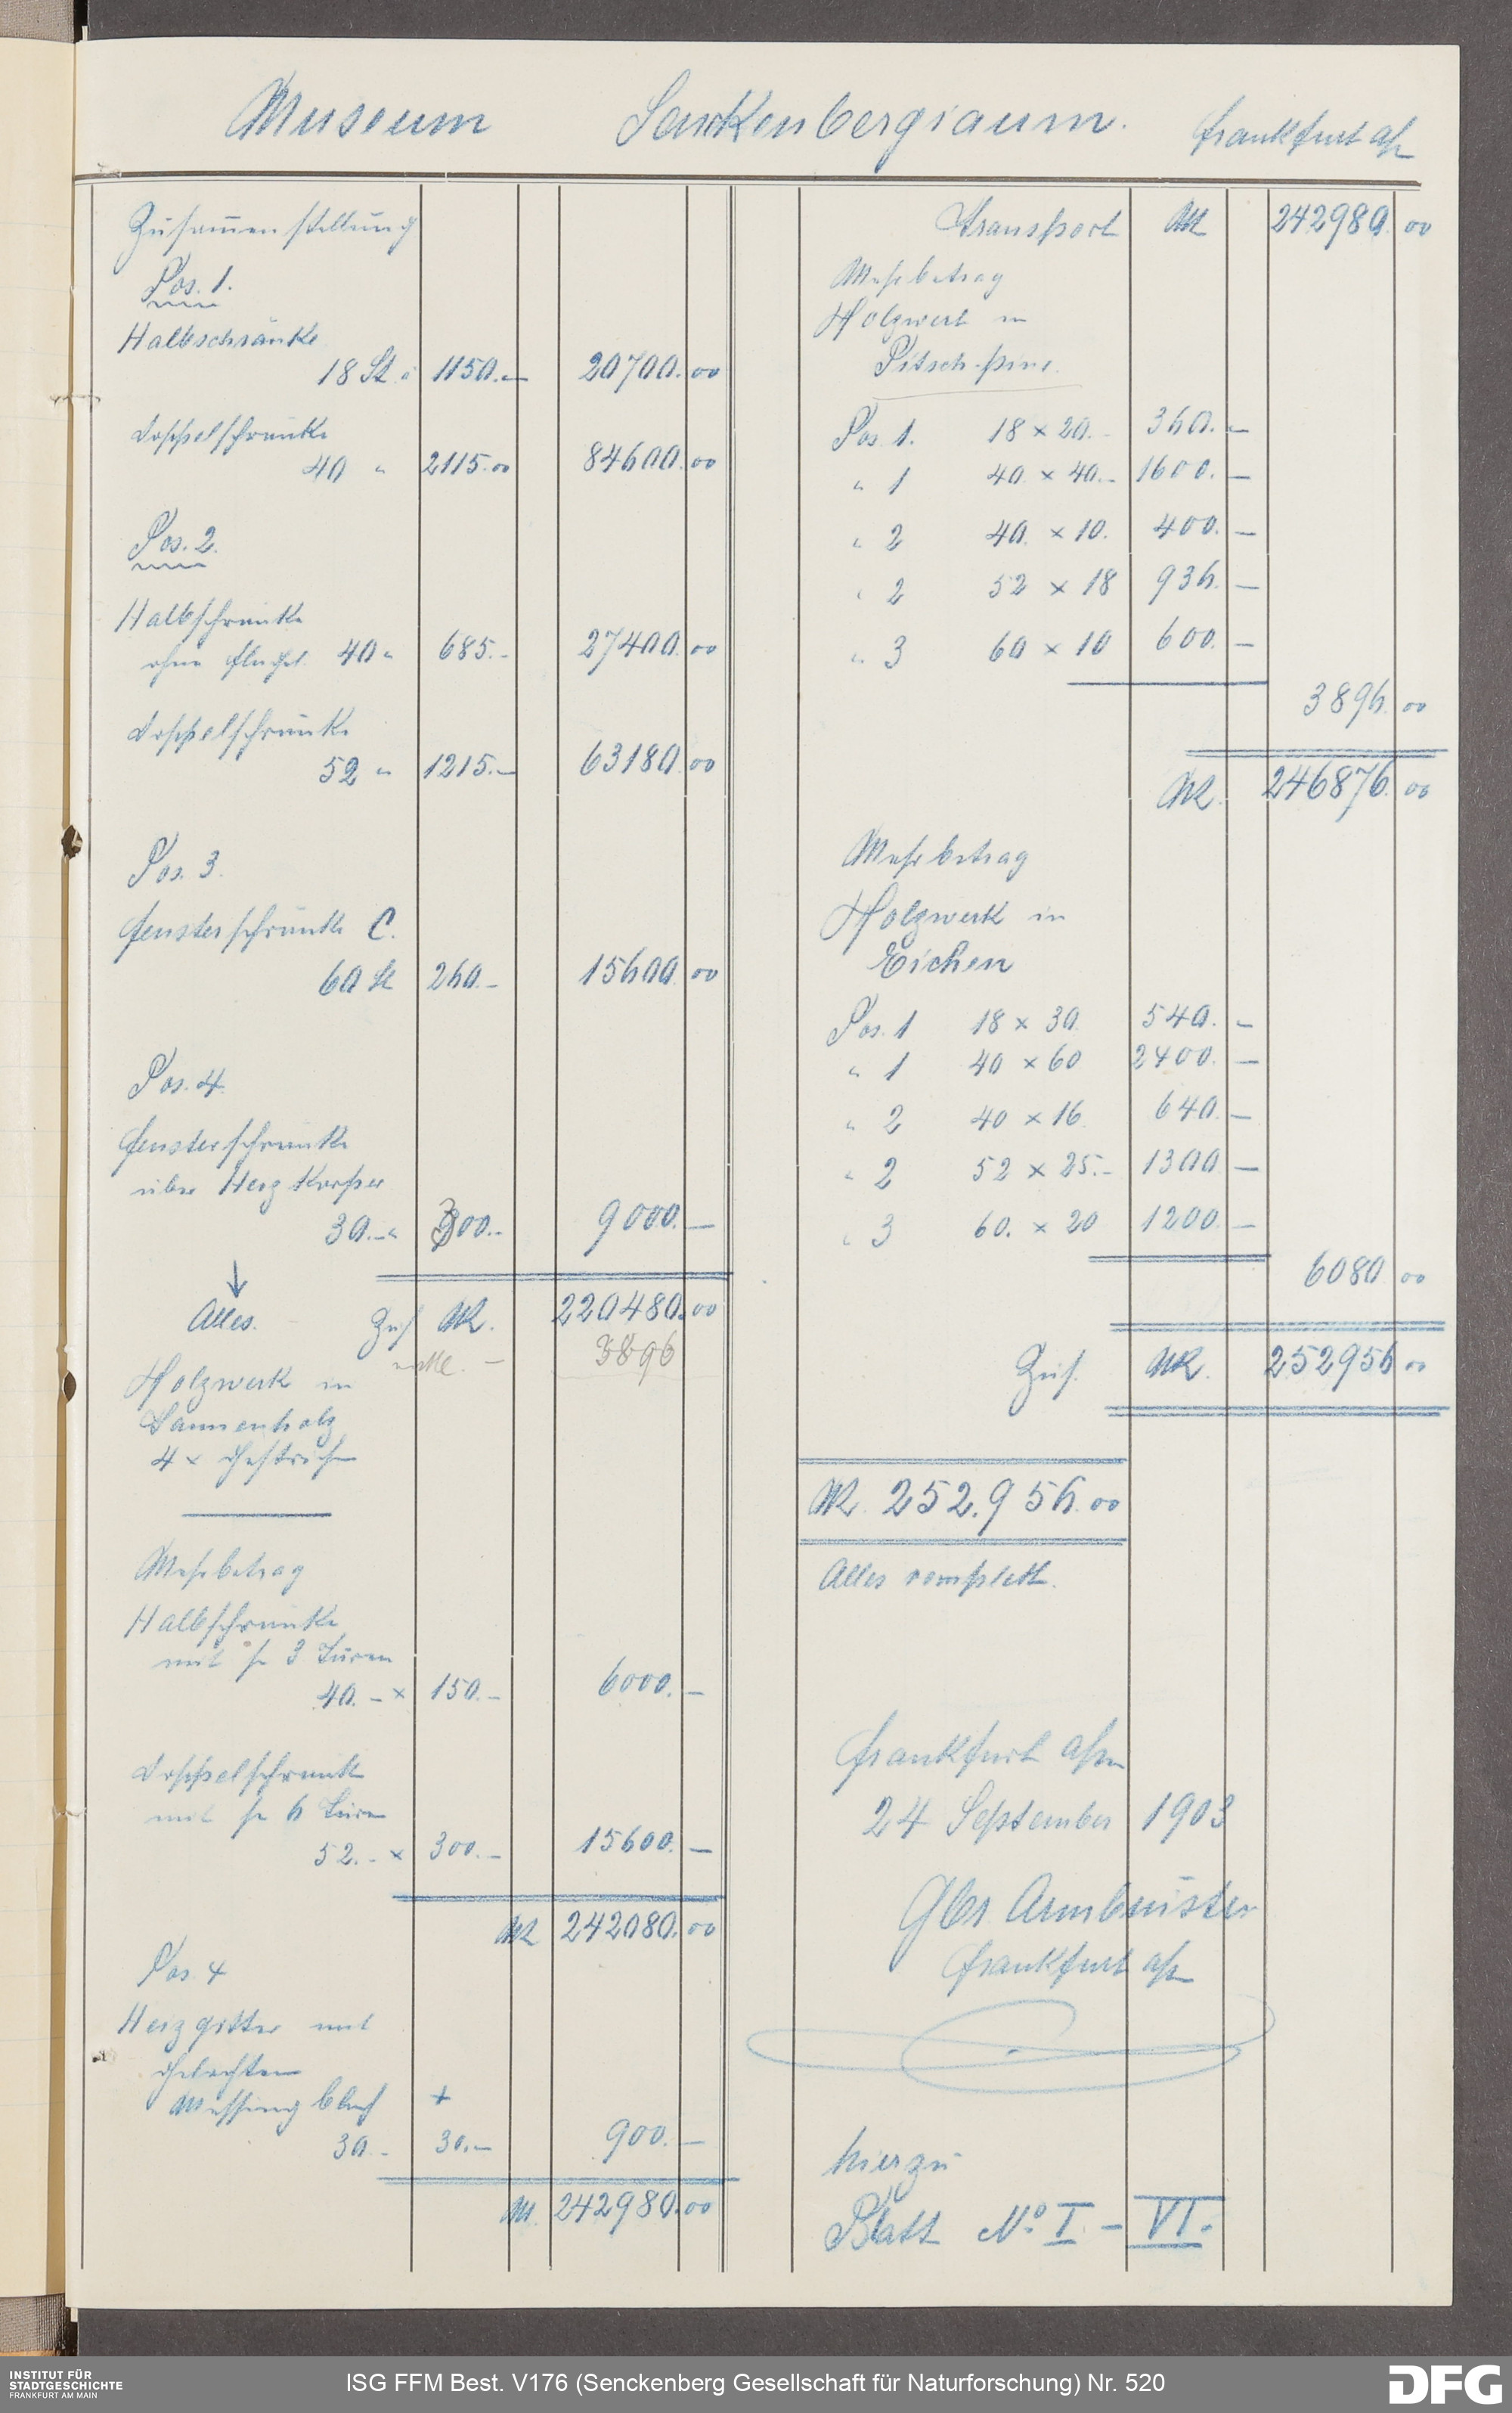 Museum Senckenbergiaum. Frankfurt a/M
Zusammenstellung
Pos. 1.
Halbschränke
18 St. à 1150.— 20700.00
Doppelschränke
40 " 2115.00 84600.00
Pos. 2.
Halbschränke
ohne Flügel. 40 " 685.– 27400.00
Doppelschränke
52 " 1215.– 63180.00
Pos. 3.
Fensterschränke C.
60 St 260.– 15600.00
Pos. 4.
Fensterschränke
über Heizkörper
30.– " 300.– 9000.—
Alles. Zus. Mk. 220480.00
3896
Holzwerk in
Tannenholz
4 x Gestrichen
Mehrbetrag
Halbschränke
mit je 3 Türen
40.– × 150.– 6000.—
Doppelschränke
mit je 6 Türen
52.– × 300.– 15600.—
Mk 242080.00
Pos 4
Heizgitter mit
Gelochten
Messing blech +
30.– 30.– 900.—
M. 242980.00
Transport Mk 242980.00
Mehrbetrag
Holzwerk in
Pitsch-pine.
Pos. 1. 18 × 20.– 360.—
" 1 40. × 40.– 1600.—
" 2 40. × 10. 400.—
" 2 52 × 18 936.—
" 3 60 × 10 600.—
3896.00
Mk. 246876.00
Mehrbetrag
Holzwerk in
Eichen
Pos. 1 18 × 30. 540.—
" 1 40 × 60 2400.—
" 2 40 × 16. 640.—
" 2 52 × 25.– 1300.—
" 3 60. × 20 1200.—
6080 00
Zus. Mk. 252956 00
Mk. 252.956.00
Alles complett.
Frankfurt a/M
24 September 1903
Gbr. Armbrüster
Frankfurt a/M
hierzu
Blatt No. I. – VI.
INSTITUT FÜR
STADTGESCHICHTE
FRANKFURT AM MAIN
ISG FFM Best. V176 (Senckenberg Gesellschaft für Naturforschung) Nr. 520
DFG